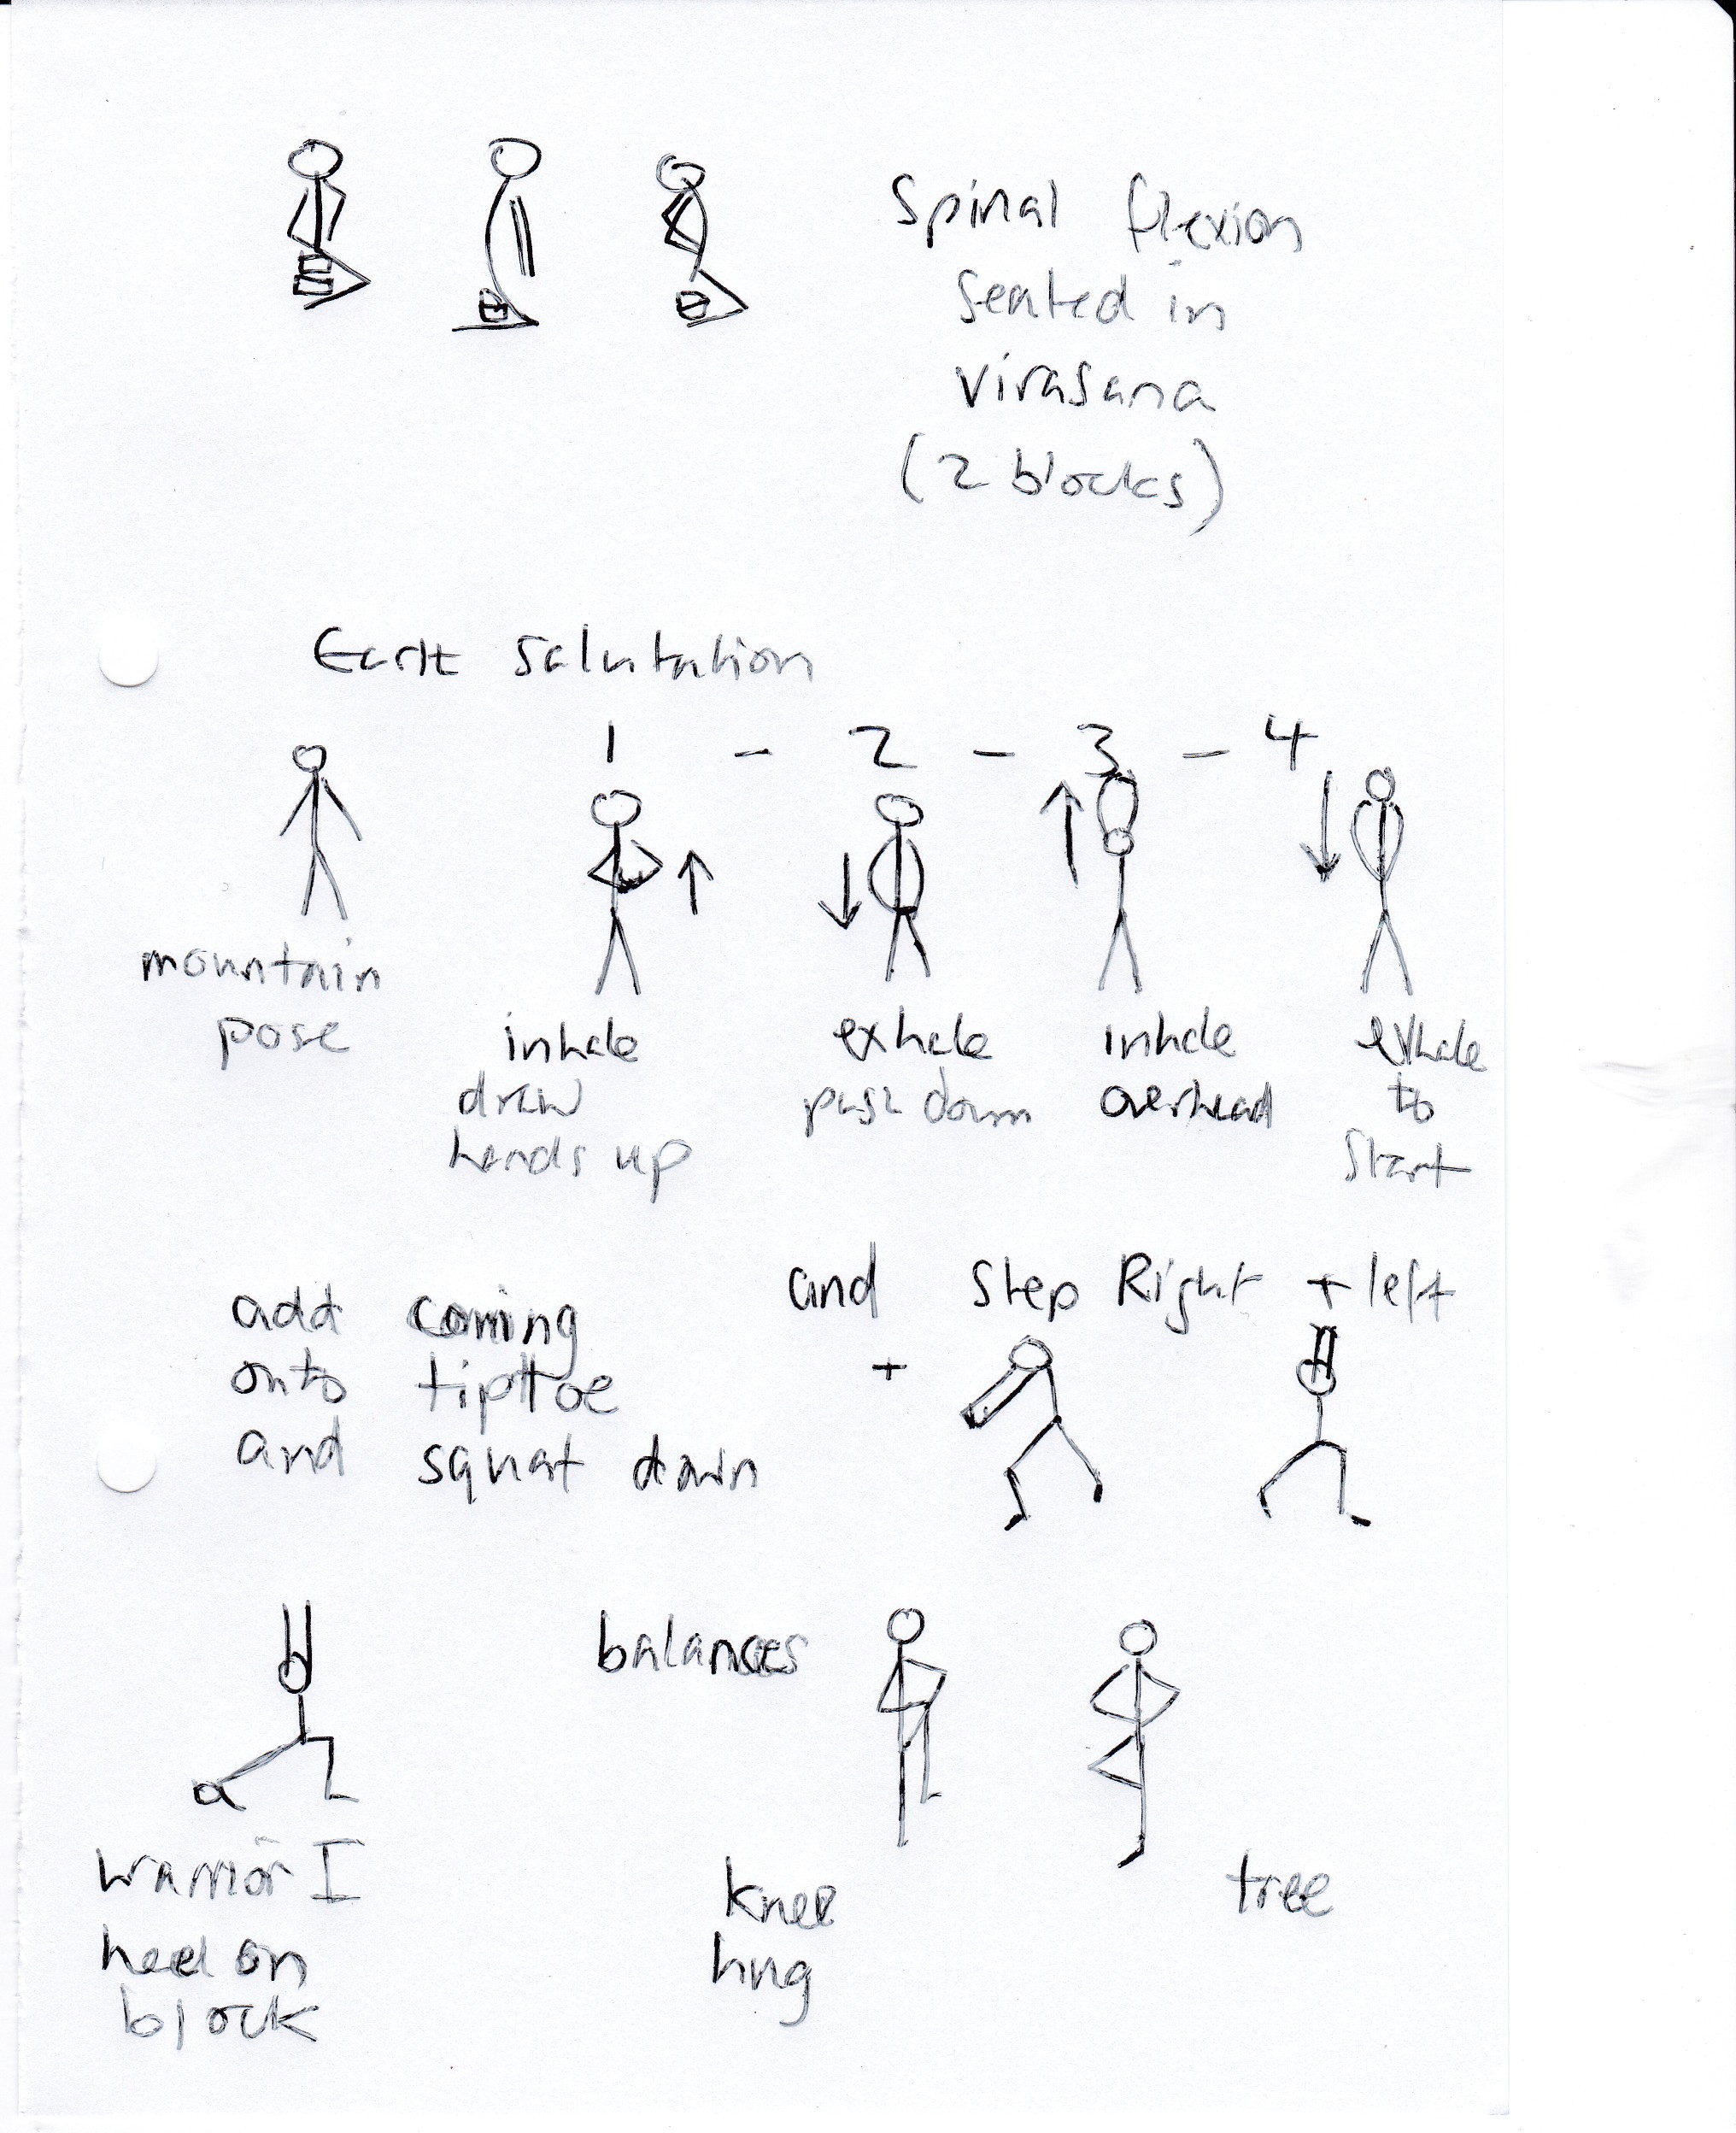 Spinal flexion
seated in
virasana
(2 blocks)
Earth Salutation
1 - 2 - 3 - 4
mountain
pose
inhale
draw
hands up
exhale
push down
inhale
overhead
exhale
to
start
add coming
onto tiptoe
and squat down
and Step Right + left
+
balances
warrior I
heel on
block
knee
hug
tree